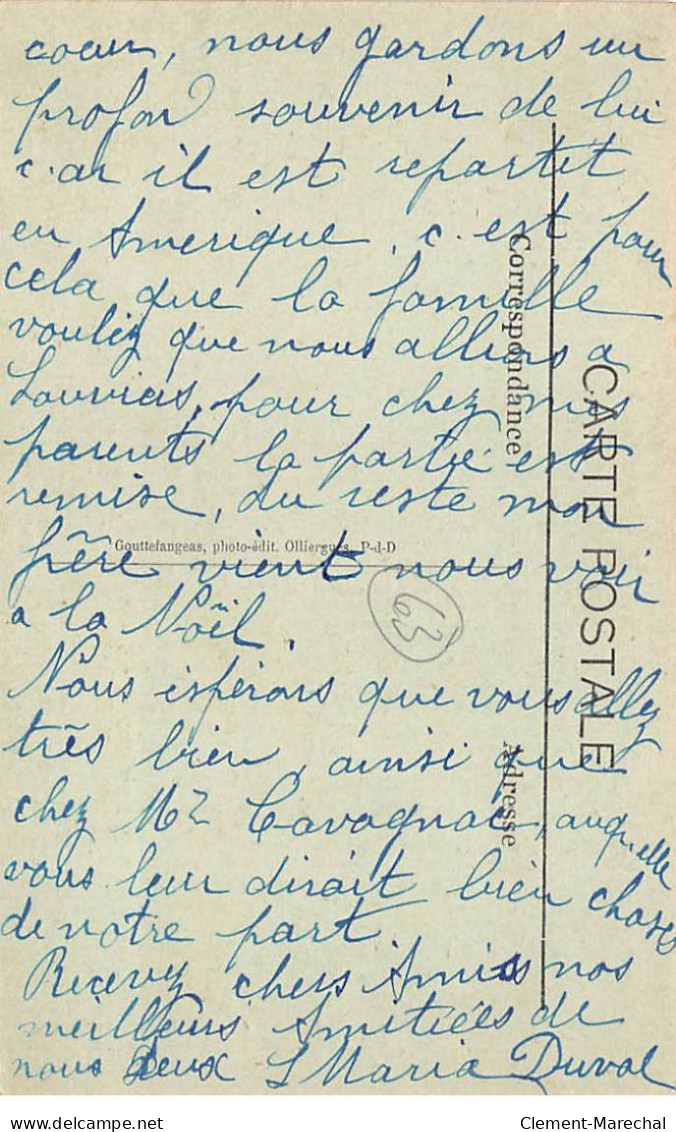 coeur, nous gardons un
profon souvenir de lui
car il est repartit
en Amerique, c'est pour
cela que la famille
voulez que nous allions a
Louviers, pour chez mes
parents la partie est
remise, du reste mon
frère vient nous voir
a la Noël.
Nous espérons que vous allez
très bien, ainsi que
chez Mr Cavagnac, auquelle
vous leur dirait bien choses
de notre part.
Recevez chers Amis nos
meilleurs Amitiées de
nous deux L Maria Duval
CARTE POSTALE
Correspondance
Adresse
Gouttefangeas, photo-édit. Olliergues, P-d-D
63
delcampe.net
Clement-Marechal